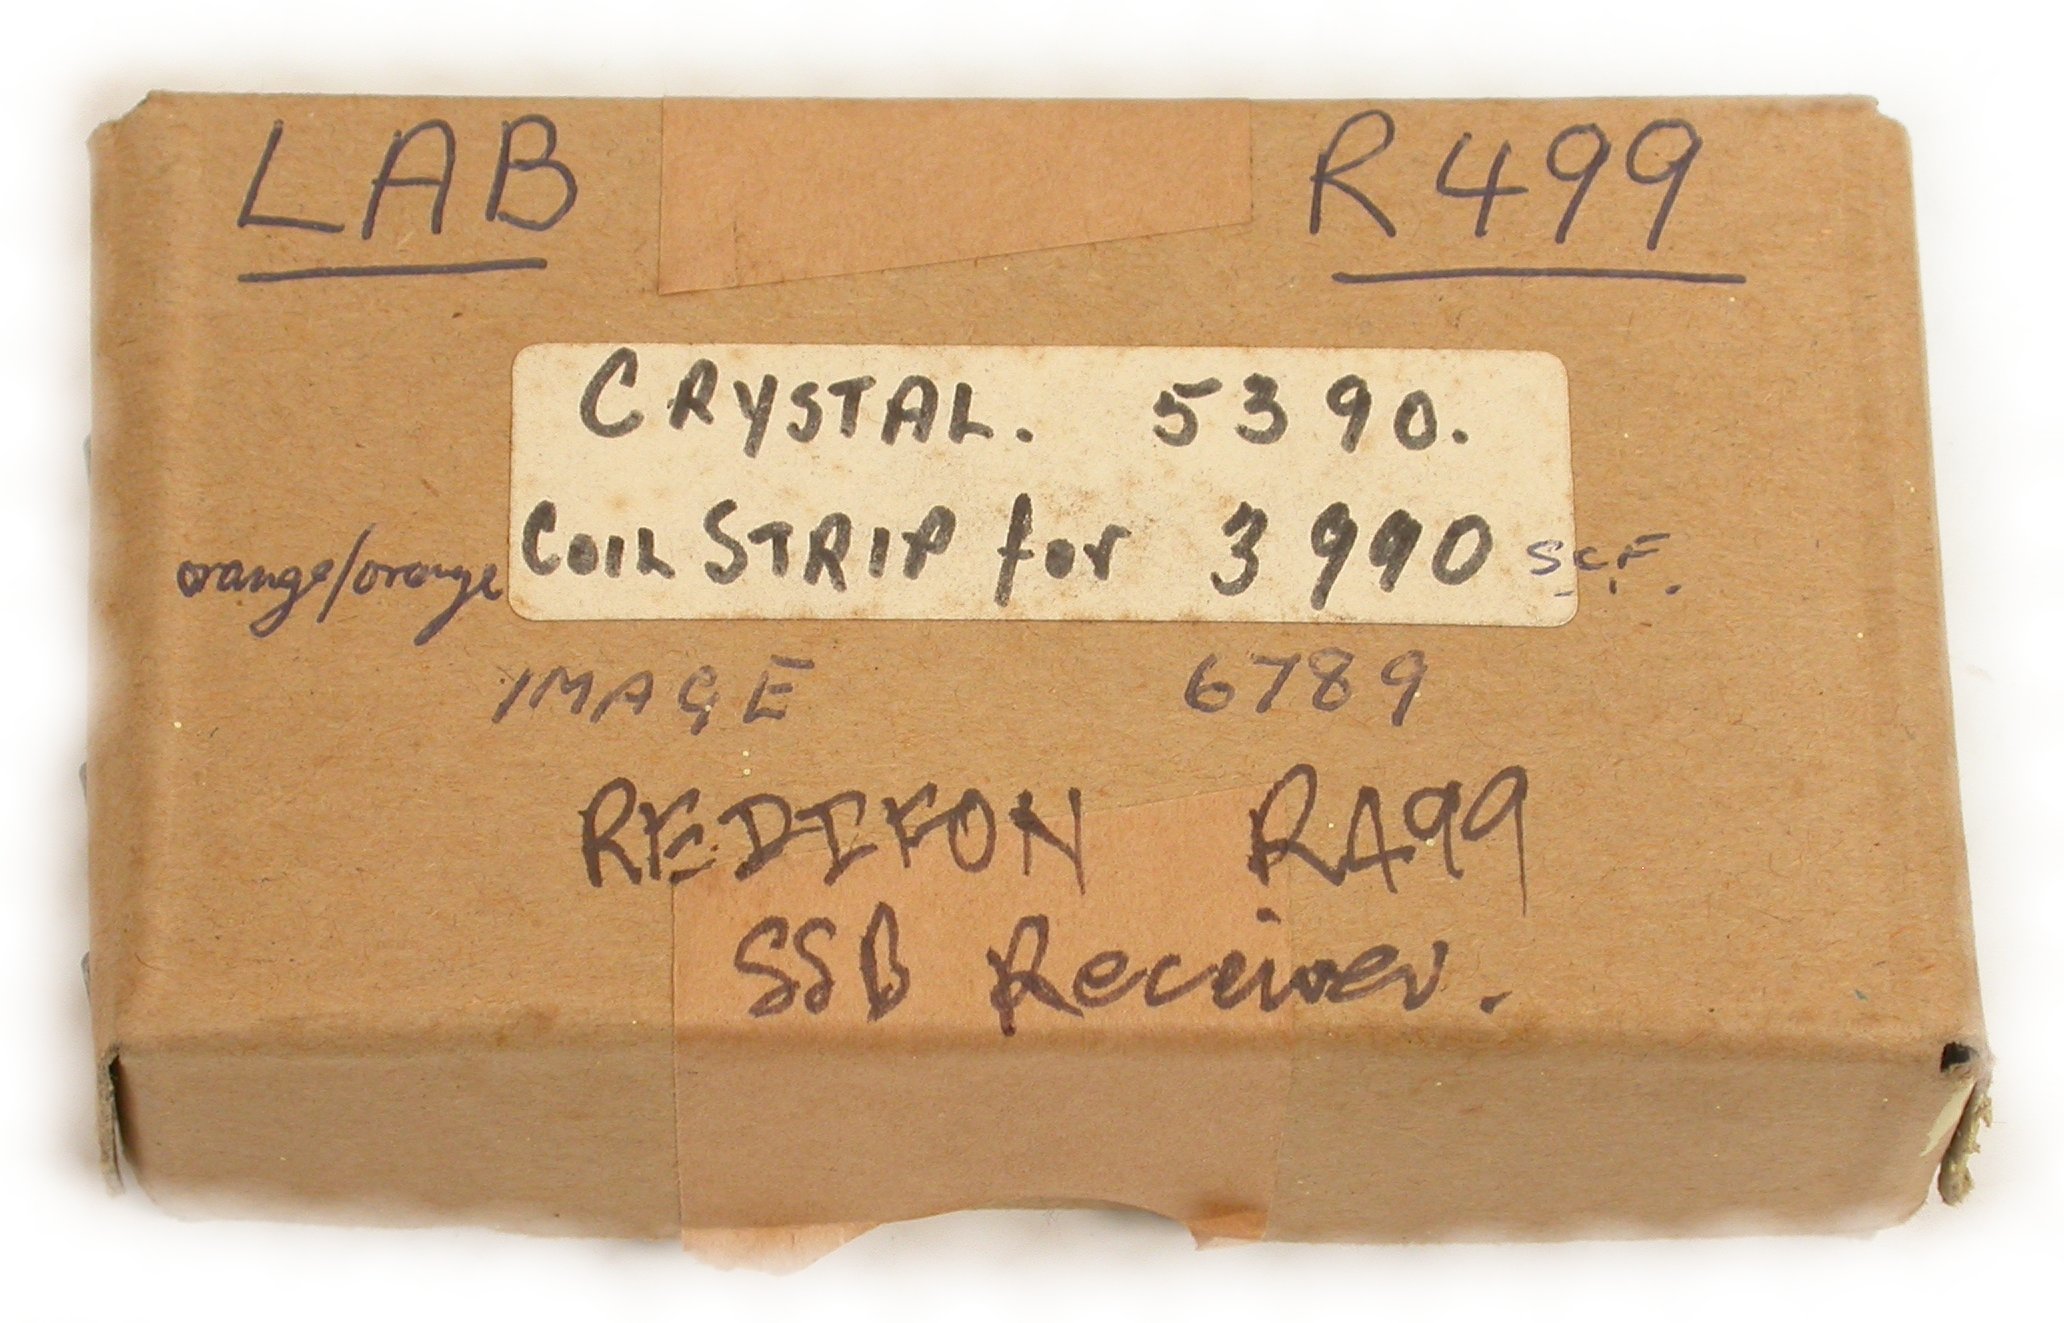 LAB R499
CRYSTAL. 5390.
orange/orange COIL STRIP for 3990 S.C.F.
IMAGE 6789
REDIFON R499
SSB Receiver.